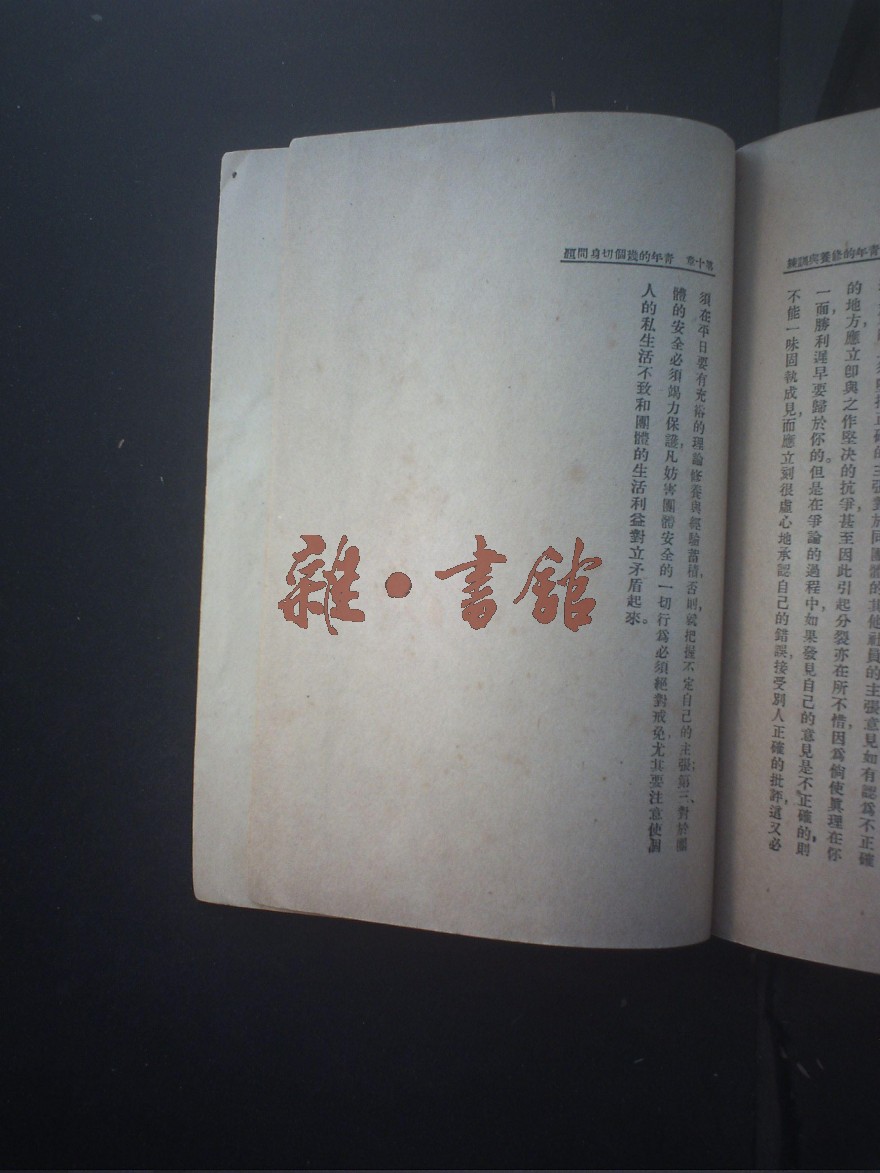 青年的修養與訓練
的主張對於同團體的其他社員的主張意見如有認為不正確
的地方,應立卽與之作堅決的抗爭,甚至因此引起分裂亦在所不惜,因為倘使眞理在你
一面,勝利遲早要歸於你的。但是在爭論的過程中,如果發見自己的意見是不正確的,則
不能一味固執成見,而應立刻很虛心地承認自己的錯誤,接受別人正確的批評,這又必
第十章 青年的幾個切身問題
須在平日要有充裕的理論修養與經驗蓄積,否則,就把握不定自己的主張;第三、對於團
體的安全必須竭力保護,凡妨害團體安全的一切行為必須絕對戒免,尤其要注意使個
人的私生活不致和團體的生活利益對立矛盾起來。
雜·書館